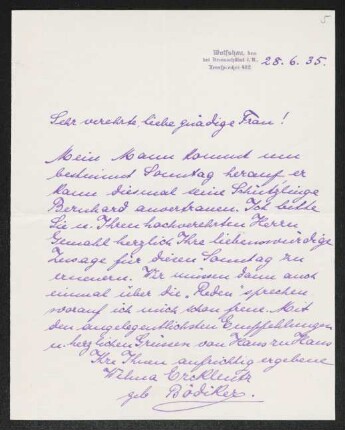 5
Wolfshau, den
bei Krummhübel i. R.
28. 6. 35.
Sehr verehrte, liebe gnädige Frau!
Mein Mann kommt nun
bestimmt Sonntag herauf er
kann diesmal seine Schützlinge
Bernhard anvertrauen. Ich bitte
Sie u. Ihren hochverehrten Herrn
Gemahl herzlich Ihre liebenswürdige
Zusage für diesen Sonntag zu
erneuern. Wir müssen dann auch
einmal über die „Reden" sprechen
worauf ich mich schon freue. Mit
den angelegentlichsten Empfehlungen
u. herzlichen Grüssen von Haus zu Haus
Ihre Ihnen aufrichtig ergebene
Wilma Ercklentz
geb. Bödiker.